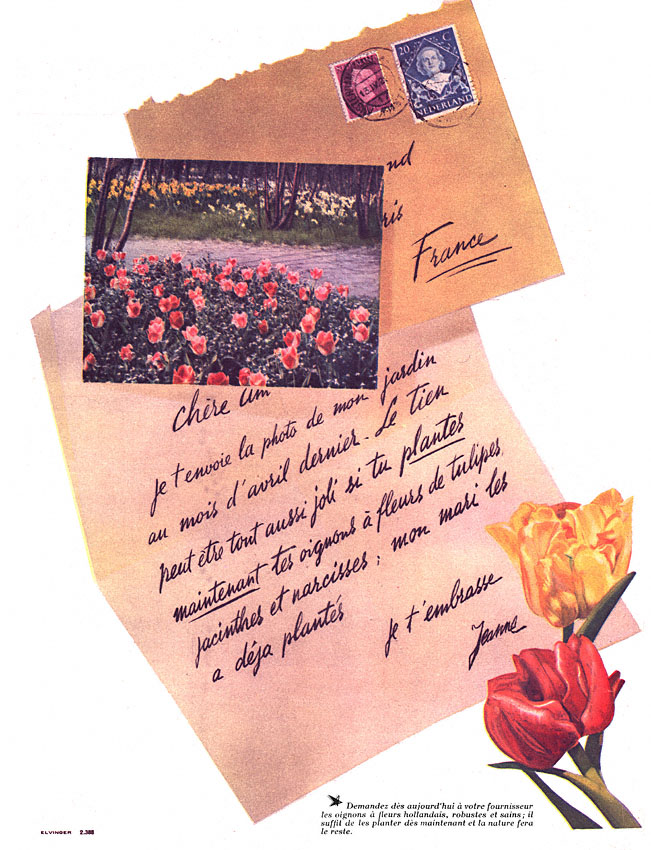 20 C
NEDERLAND
nd
ris
France
Chère Am
je t'envoie la photo de mon jardin
au mois d'avril dernier - Le tien
peut être tout aussi joli si tu plantes
maintenant tes oignons à fleurs de tulipes,
jacinthes et narcisses ; mon mari les
a déja plantés
je t'embrasse
Jeanne
Demandez dès aujourd'hui à votre fournisseur
les oignons à fleurs hollandais, robustes et sains ; il
suffit de les planter dès maintenant et la nature fera
le reste.
ELVINGER 2.388